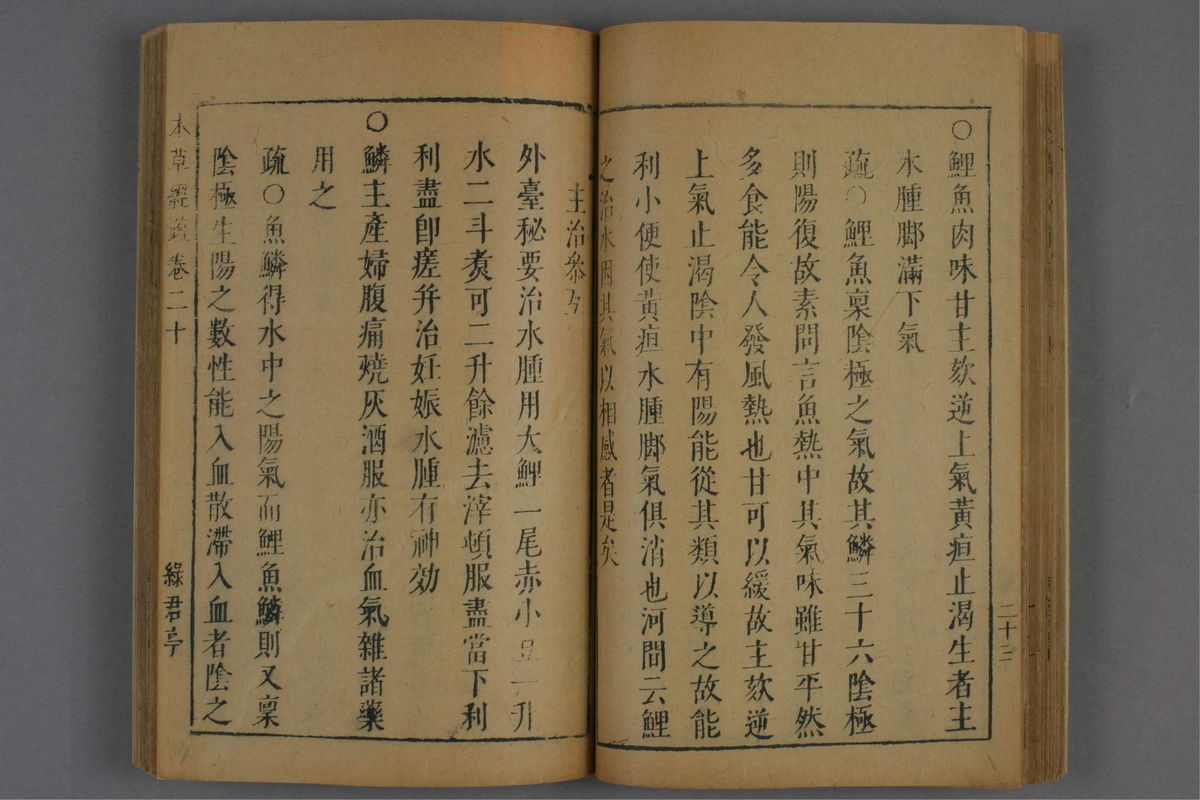 ○鯉魚肉味甘主欬逆上氣黃疸止渴生者主
水腫脚滿下氣
疏○鯉魚稟陰極之氣故其鱗三十六陰極
則陽復故素問言魚熱中其氣味雖甘平然
多食能令人發風熱也甘可以緩故主欬逆
上氣止渴陰中有陽能從其類以導之故能
利小便使黃疸水腫脚氣俱消也河間云鯉
之治水因其氣以相感者是矣
二十三
主治叅互
外臺秘要治水腫用大鯉一尾赤小豆一升
水二斗煑可二升餘濾去滓頓服盡當下利
利盡卽瘥幷治妊娠水腫有神効
○鱗主產婦腹痛燒灰酒服亦治血氣雜諸藥
用之
疏○魚鱗得水中之陽氣而鯉魚鱗則又稟
陰極生陽之數性能入血散滯入血者陰之
本草經疏卷二十
綠君亭